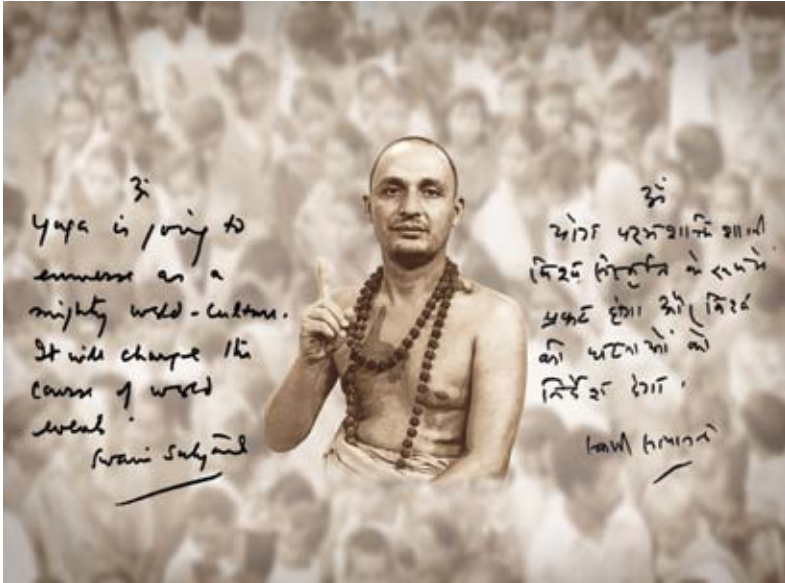 ॐ
Yoga is going to
emmerse as a
mighty world-culture.
It will change the
course of world
events
Swami Satyanand
ॐ
योग परम शक्तिशाली
विश्व संस्कृति के रूप में
प्रकट होगा और विश्व
की घटनाओं को
निर्देश देगा.
स्वामी सत्यानन्द